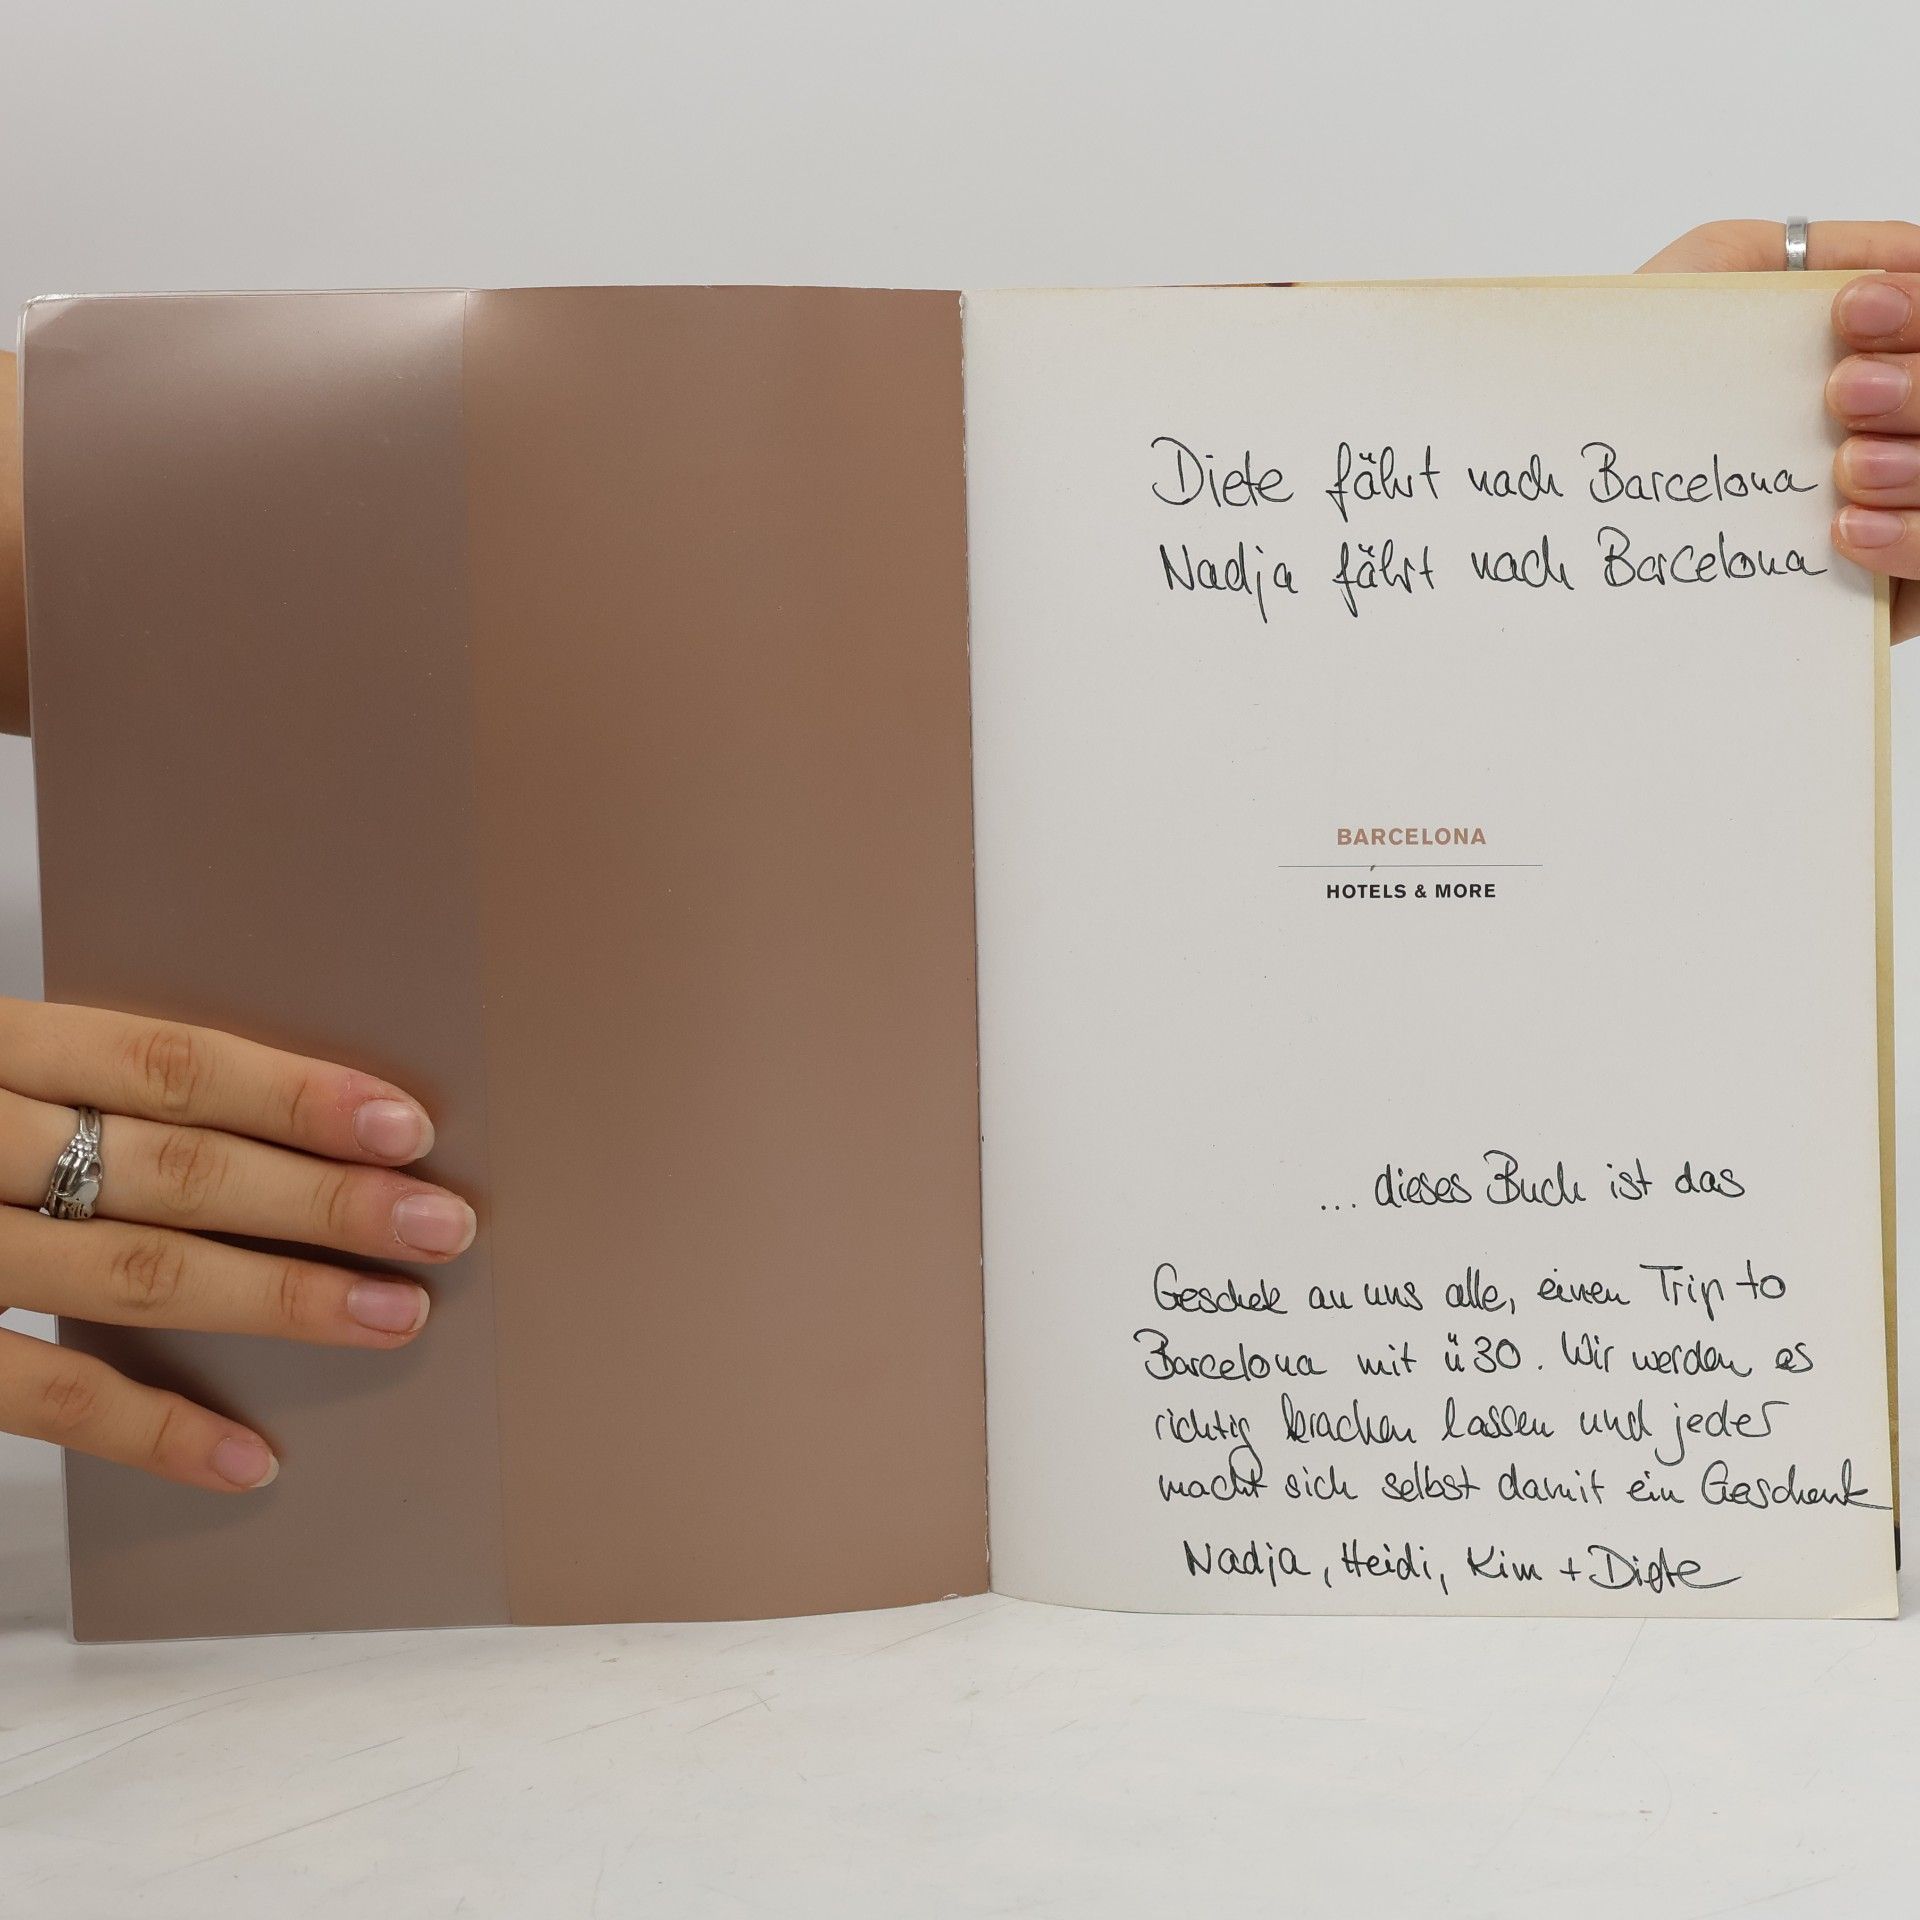 Diete fährt nach Barcelona
Nadja fährt nach Barcelona
BARCELONA
HOTELS & MORE
... dieses Buch ist das
Geschek an uns alle, einen Trip to
Barcelona mit ü30. Wir werden es
richtig krachen lassen und jeder
macht sich selbst damit ein Geschenk
Nadja, Heidi, Kim + Diete